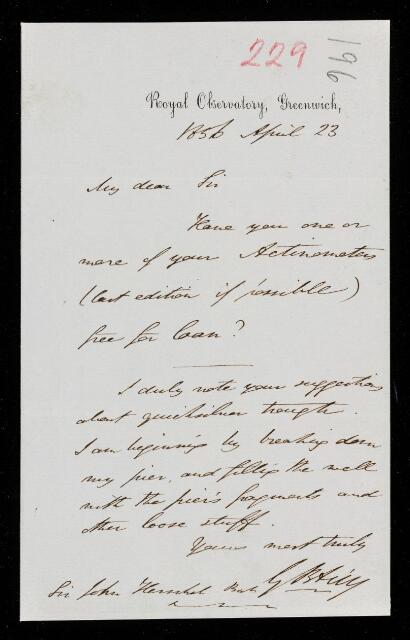 229
196
Royal Observatory, Greenwich,
1856 April 23
My dear Sir
Have you one or
more of your Actinometers
(last edition if possible)
free for loan?
I duly note your suggestions
about quicksilver trough.
I am beginning by breaking down
my pier, and filling the well
with the pier's fragments and
other loose stuff.
Yours most truly
G B Airy
Sir John Herschel Bart